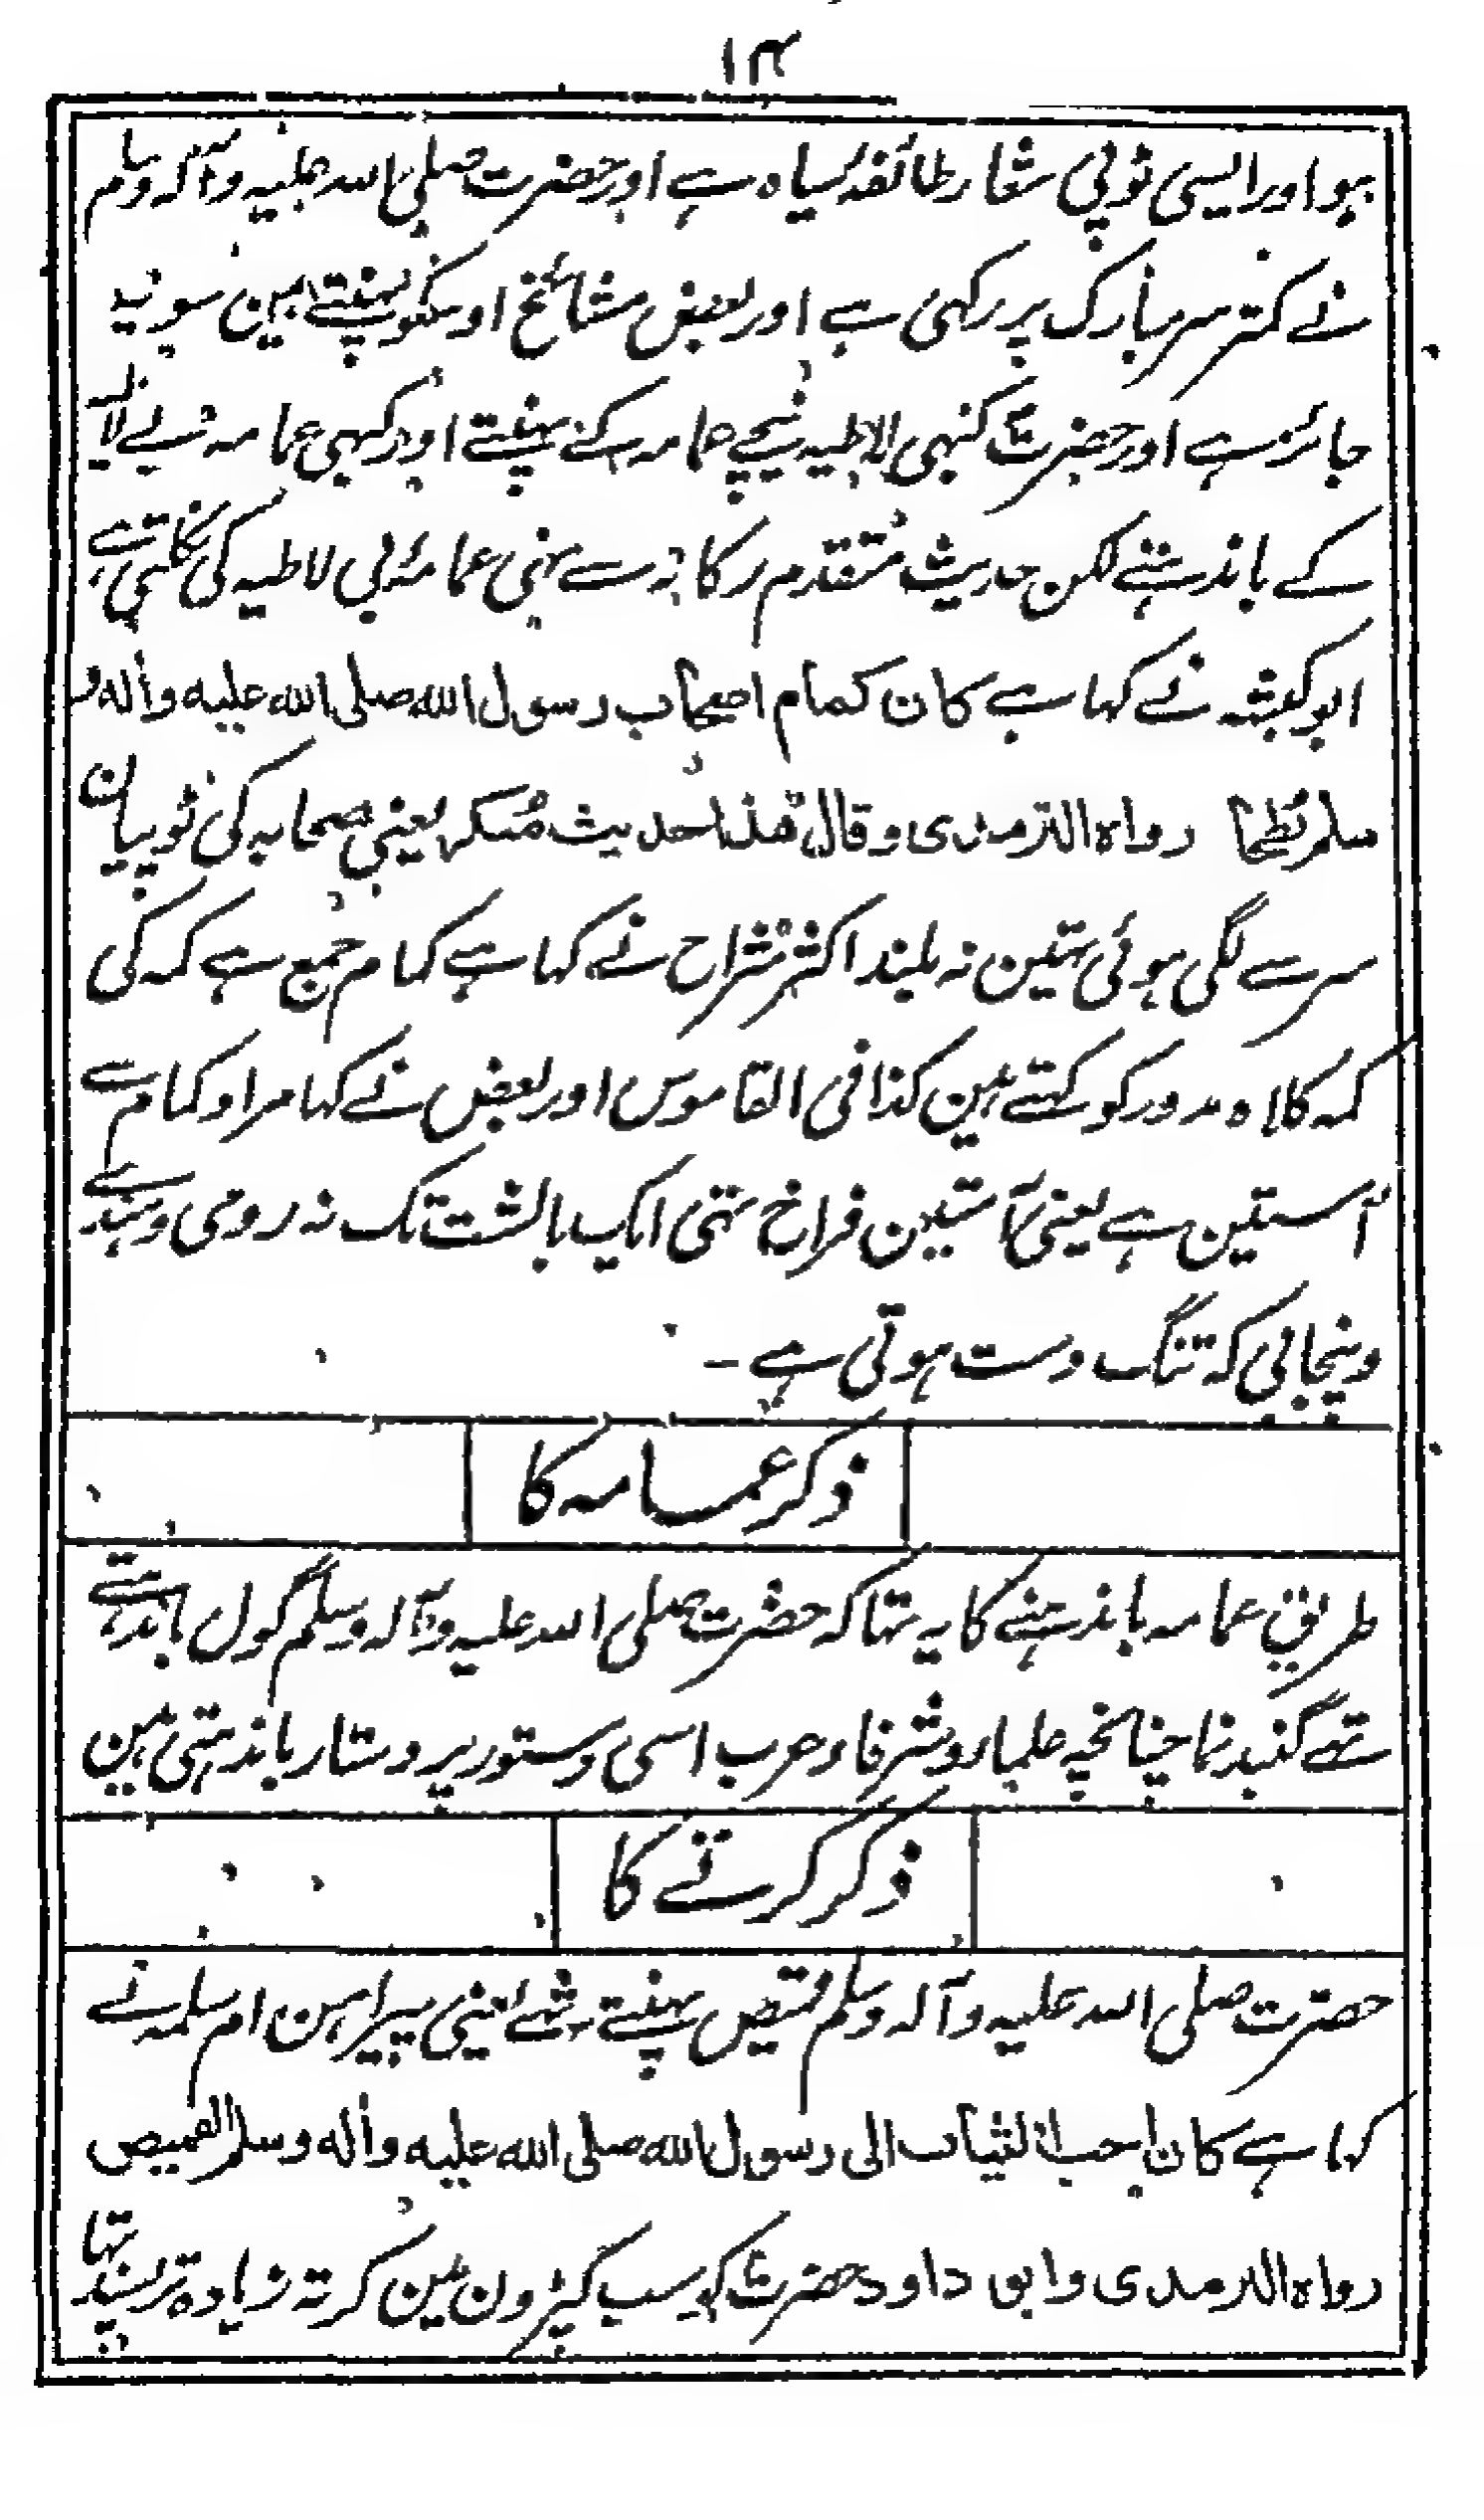 ۱۴
ہو اور ایسی ٹوپی شعار طائفہ سیاہ ہے اور حضرت صلی اللہ علیہ وآلہ وسلم
نے کمتر سر مبارک پر رکہی ہے اور بعض مشائخ اوسکو پہنتے ہین سو یہ
جائز ہے اور حضرت کبہی لاطیہ نیچے عمامہ کے پہنتے اور کبہی عمامہ بے لاطیہ
کے باندہتے لکن حدیث متقدم رکانہ سے نہی عمامہ بی لاطیہ کی نکلتی ہے
ابو کبشہ نے کہا ہے کان کمام اصحاب رسول الله صلى الله عليه وأله و
سلم بُطحا رواه الترمذى وقال هذا حديث مُنكر یعنی صحابہ کی ٹوپیان
سر سے لگی ہوئی تہین نہ بلند اکثر شراح نے کہا ہے کمام جمع ہے کمہ کی
کمہ کلاہ مدور کو کہتے ہین کذا فی القاموس اور بعض نے کہا مراد کمام سے
آستین ہے یعنی آستین فراخ تہی ایک بالشت تک نہ رومی و ہندے
و پنجابی کہ تنگ دست ہوتی ہے ۔
ذکر عمامہ کا
طریق عمامہ باندہنے کا یہ تہا کہ حضرت صلی اللہ علیہ وآلہ وسلم گول باندہتے
تھے گنبد نما چنانچہ علماء و شرفاء عرب اسی دستور پر دستار باندہتی ہین
ذکر کرتے کا
حضرت صلی اللہ علیہ وآلہ وسلم قمیص پہنتے تھے یعنی پیراہن ام سلمہ نے
کہا ہے كان احب الثياب الى رسول الله صلى الله عليه وأله وسلم القميص
رواه الترمذى وابو داود حضرت کو سب کپڑون مین کرتہ زیادہ تر پسند تہا